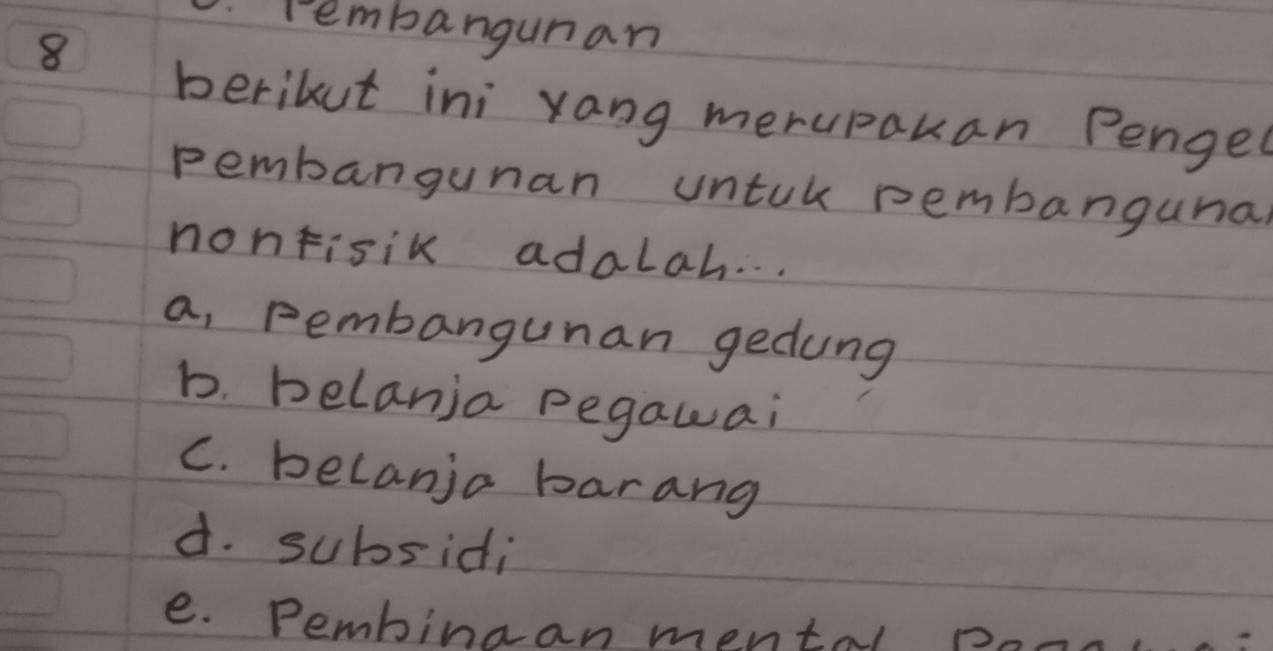 Pembangunan
8 berikut ini yang merupakan Pengel
pembangunan untuk pembanguna
nonfisik adalah...
a, pembangunan gedung
b. belanja pegawai
c. belanja barang
d. subsidi
e. Pembinaan mental